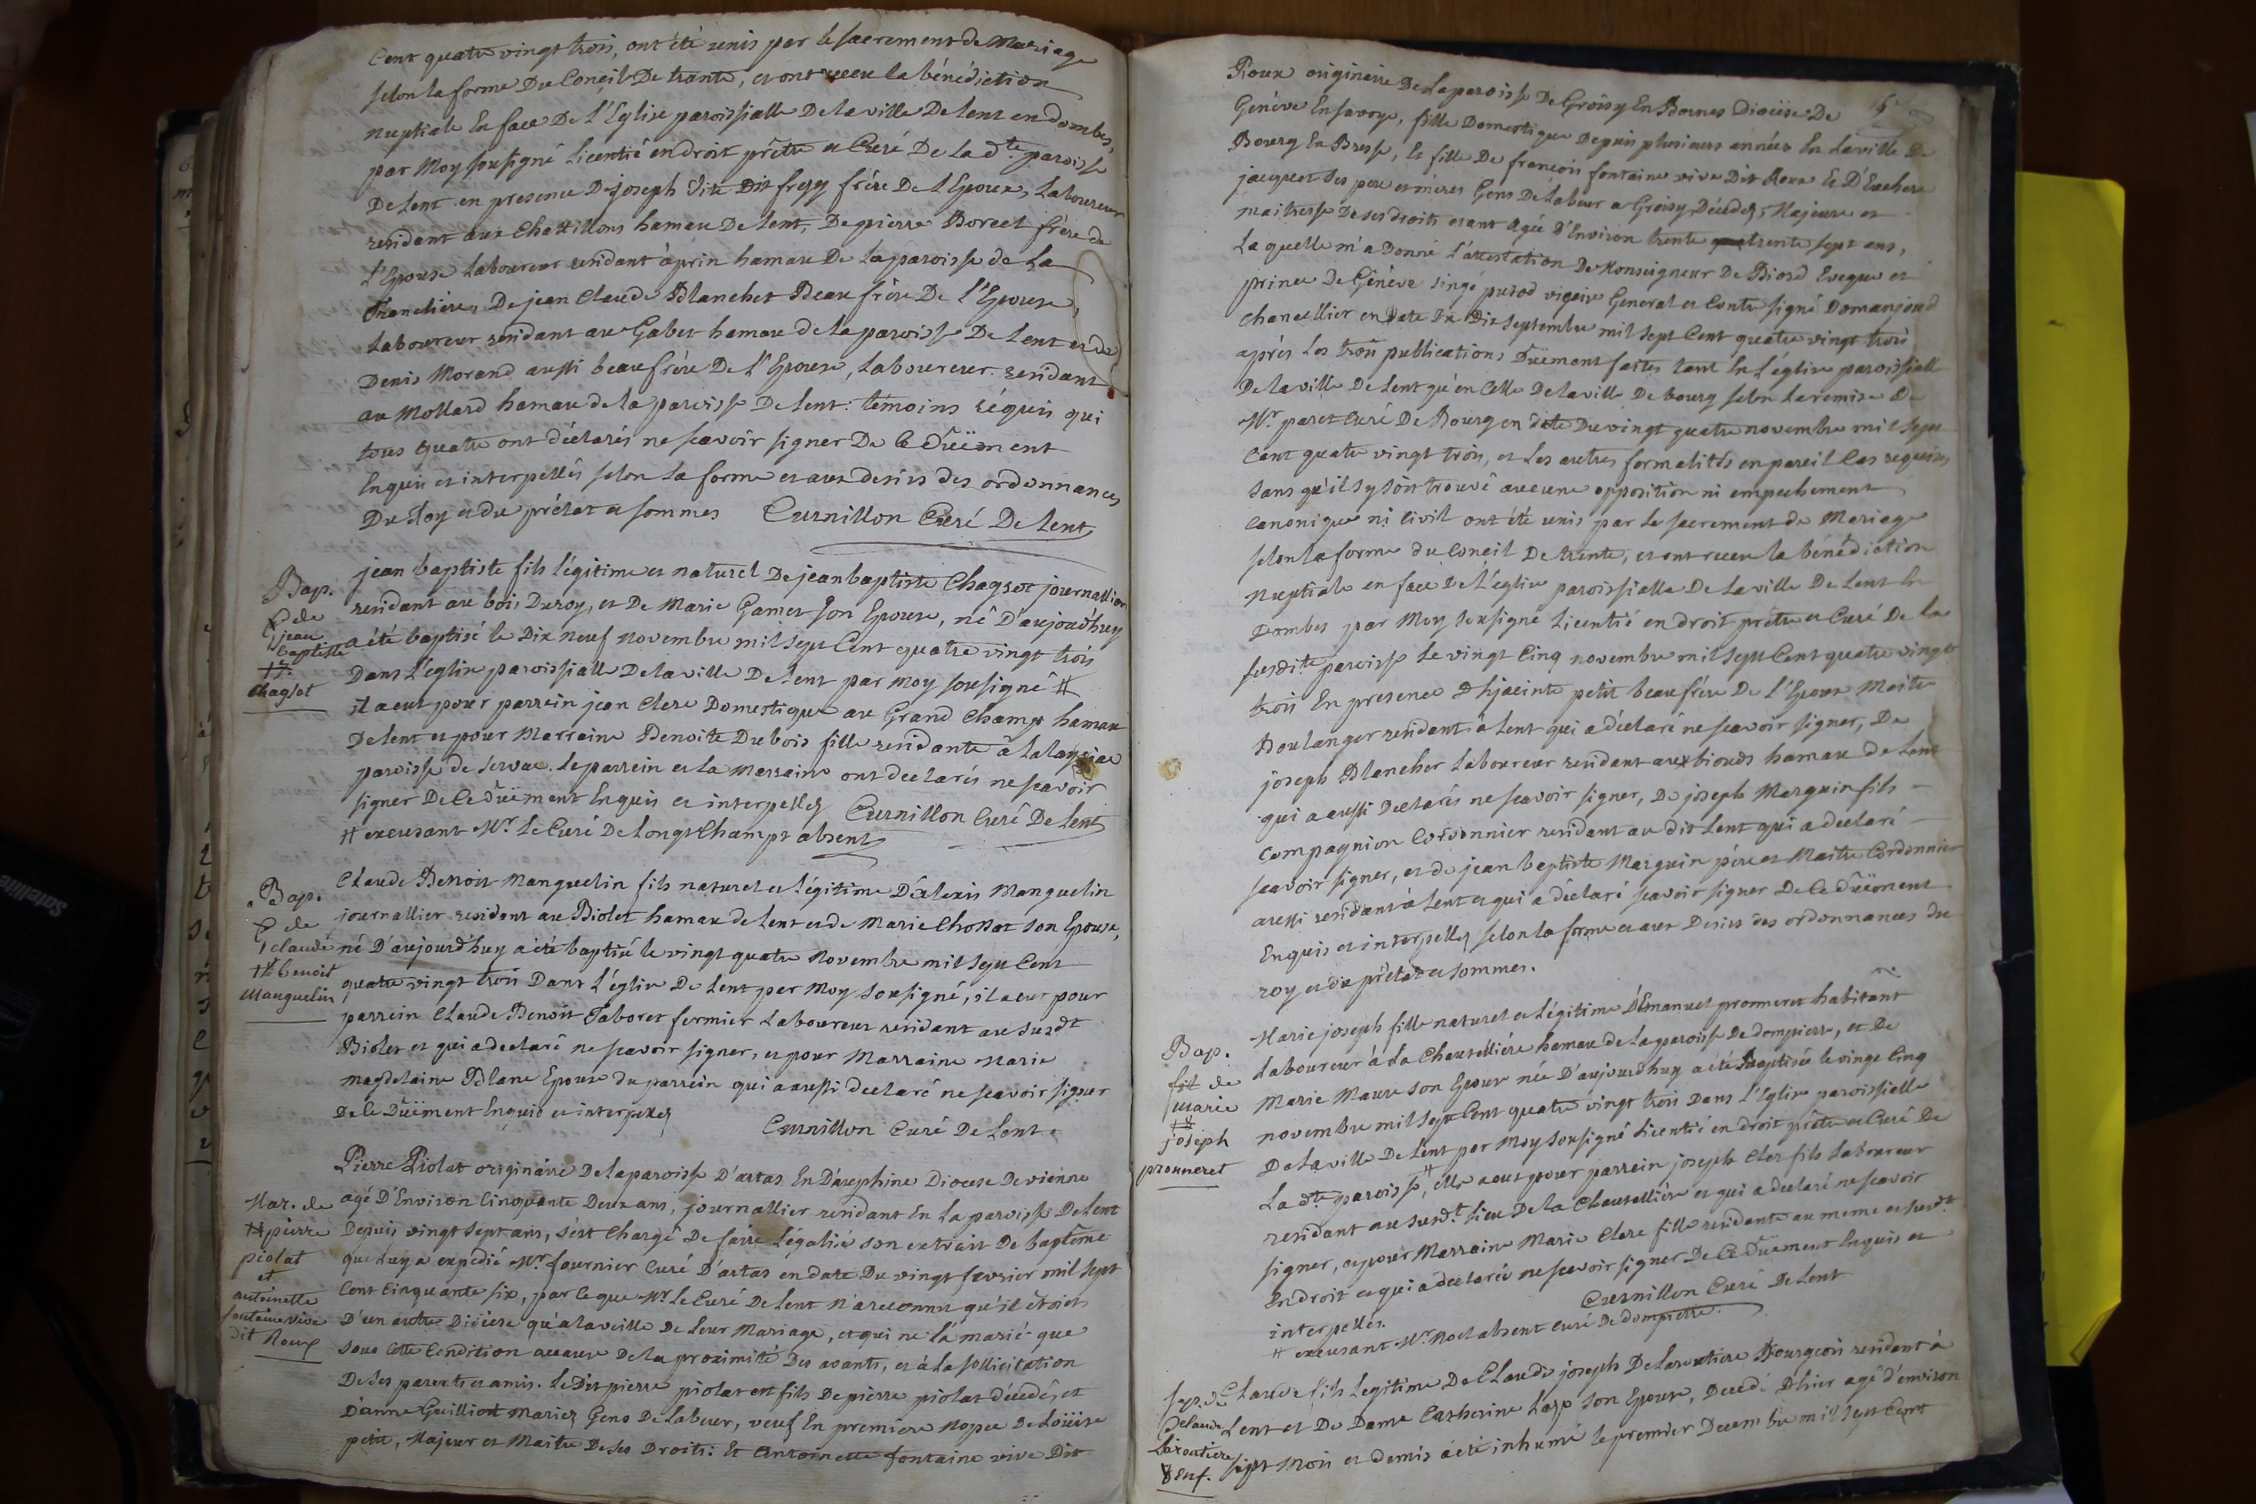 Cent quatre vingt trois, ont été unis par le sacrement de Mariage
selon la forme Du Conçil De trante, et ont receu la bénédiction
nuptiale En face De L'Eglise paroissialle De la ville De Lent en dombes,
par Moy soussigné Licentié en droit prêtre et Curé De La dte. paroisse
De Lent en presence De joseph dit fresy frère De L'Epoux, Laboureur
residant aux Chatillons hamau De Lent, De pierre Borcet frère de
L'Epouse Laboureur residant à prin hamau De La paroisse de La
Tranclière, De jean Claude Blanchet Beau frère De L'Epouse,
Laboureur residant au Gabet hamau de la paroisse De Lent et de
Denis Morand aussi beaufrère De L'Epouse, Laboureur residant
au Mollard hamau de la paroisse De Lent: témoins réquis qui
tous quatre ont déclarés ne sçavoir signer De Ce Düement
Enquis et interpellés selon La forme et aux desirs des ordonnances
Du Roy et du prélat et sommés Curnillon Curé De Lent
Bap.
de
jean
baptiste
Chagsot
jean baptiste fils légitime et naturel De jean baptiste Chagsot journallier
residant au bois Du roy, et De Marie Gamet son Epouse, né D'aujourd'huy
a été baptisé le Dix neuf novembre mil sept Cent quatre vingt trois
Dans L'église paroissialle De la ville De Lent par Moy soussigné #
il a eut pour parrein jean Clerc Domestique au Grand Champ hamau
De Lent et pour Marraine Benoite Dubois fille residante à
paroisse de Servas. Le parrein et La Marraine ont declarés ne sçavoir
signer De Ce Düement Enquis et interpellés Curnillon Curé De Lent
# excusant Mr. Le Curé De Longchamps absent
Bap.
de
claude
benoit
Manguelin
Claude Benoit Manguelin fils naturel et légitime D'alexis Manguelin
journallier residant au Biolet hamau de Lent et de Marie Chossat son Epouse,
né D'aujourd'huy a été baptisé le vingt quatre Novembre mil sept Cent
quatre vingt trois Dans L'église De Lent par Moy soussigné, il a eut pour
parrein Claude Benoit Taboret fermier Laboureur residant au susdt
Biolet et qui a declaré ne sçavoir signer, et pour Marraine Marie
magdelaine Blanc Epouse du parrein qui a aussi declaré ne sçavoir signer
De Ce Düement Enquis et interpellés
Curnillon Curé De Lent.
Mar. de
pierre
piolat
et
antoinette
fontaine vive
dit Roux
Pierre Piolat originaire De la paroisse D'artas En Dauphiné Diocese De vienne
agé D'Environ Cinquante Deux ans, journallier residant En La paroisse De Lent
Depuis vingt sept ans, s'est Chargé De faire Légalisé son extrait De baptême
que Luy a expédié Mr. fournier Curé D'artas en date Du vingt fevrier mil sept
Cent Cinquante six, par Ce que Mr. Le Curé De Lent N'a reconnu qu'il étoit
D'un autre Diôcese qu'a la veille De Leur Mariage, et qui ne l'a marié que
sous Cette Condition au De la proximité Des avants, et à La sollicitation
De Ses parents et amis. Le Dit pierre piolat est fils De pierre piolat décédés et
D'anne Guilliot Mariez Gens De Labeur, veuf En premiere Nopce De Loüise
petit, Majeur et Maitre De Ses Droits: Et Antoinette fontaine vive Dit
Roux originaire De La paroisse De Groisy En Bornes Dioçèse De
Genève En savoye, fille Domestique Depuis plusieurs années En La ville De
Bourg En Bresse, Et fille De françois fontaine vive Dit Roux Et D'
jacquet ses pere et mères Gens De Labeur a Groisy Décédez, Majeure et
maitresse De ses droits etant agée D'Environ trente trente sept ans,
La quelle m'a Donné L'attestation De Monseigneur De Biord Eveque et
prince De Genève signé vicaire General et Contre signé Domanjoud
chancellier en Date Du Dix septembre mil sept Cent quatre vingt trois
après Les trois publications Düement faites tant En L'église paroissiall
De la ville De Lent qu'en Celle De la ville De bourg selon La remise De
Mr. paret Curé De Bourg en date Du vingt quatre novembre mil sept
Cent quatre vingt trois, et Les autres formalités en pareil Cas requises
sans qu'il sy soit trouvé aucune opposition ni empechement
canonique ni Civil ont été unis par Le sacrement de Mariage
selon la forme du Conçil De trente, et ont receu la bénédiction
nuptiale en face De L'église paroissialle De La ville De Lent En
Dombes par Moy soussigné Licentié en droit prêtre et Curé De La
susdite paroisse Le vingt Cinq novembre mil sept Cent quatre vingt
trois En presence D'hjacinte petit beaufrére De L'Epoux Maitre
Boulanger residant à Lent qui a déclaré ne sçavoir signer, De
joseph Blanchet Laboureur residant aux hamau de Lent
qui a aussi Declarés ne sçavoir signer, De joseph Marguin fils
compagnion Cordonnier residant au dit Lent qui a declaré
sçavoir signer, et de jean baptiste Marguin père et Maitre Cordonnier
aussi residant à Lent et qui a déclaré sçavoir signer De Ce Düement
Enquis et interpellés selon la forme et aux Desirs des ordonnances du
roy et du prélat et sommés.
Bap.
de
Marie
joseph
pronneret
Marie joseph fille naturel et Légitime D'Emanuel pronneret habitant
Laboureur à La Chautellière hamau de La paroisse De dompierre, et De
Marie Maure son Epouse née D'aujourd'huy a été Baptisée le vingt Cinq
novembre mil sept Cent quatre vingt trois Dans L'Eglise paroissialle
De La ville De Lent par Moy soussigné Licentié en droit prêtre et Curé De
La dte. paroisse #, elle a eut pour parrein joseph Cler fils Laboureur
residant au susdt. Lieu De La Chautellière et qui a declaré ne sçavoir
signer, et pour Marraine Marie Clerc fille residante au meme et susdt
Endroit et qui a declarée ne sçavoir signer De Ce Düement Enquis et
interpellés. Curnillon Curé De Lent
# excusant Mr. Noel absent curé De dompierre.
Sep. de
Claude
Laroutiere
Enf.
Claude fils Légitime De Claude joseph De Laroutiere Bourgeois residant à
Lent et De Dame Catherine son Epouse, Decedé D'hier agé d'environ
sept Mois et demis a été inhumé le premier Decembre mil sept Cent